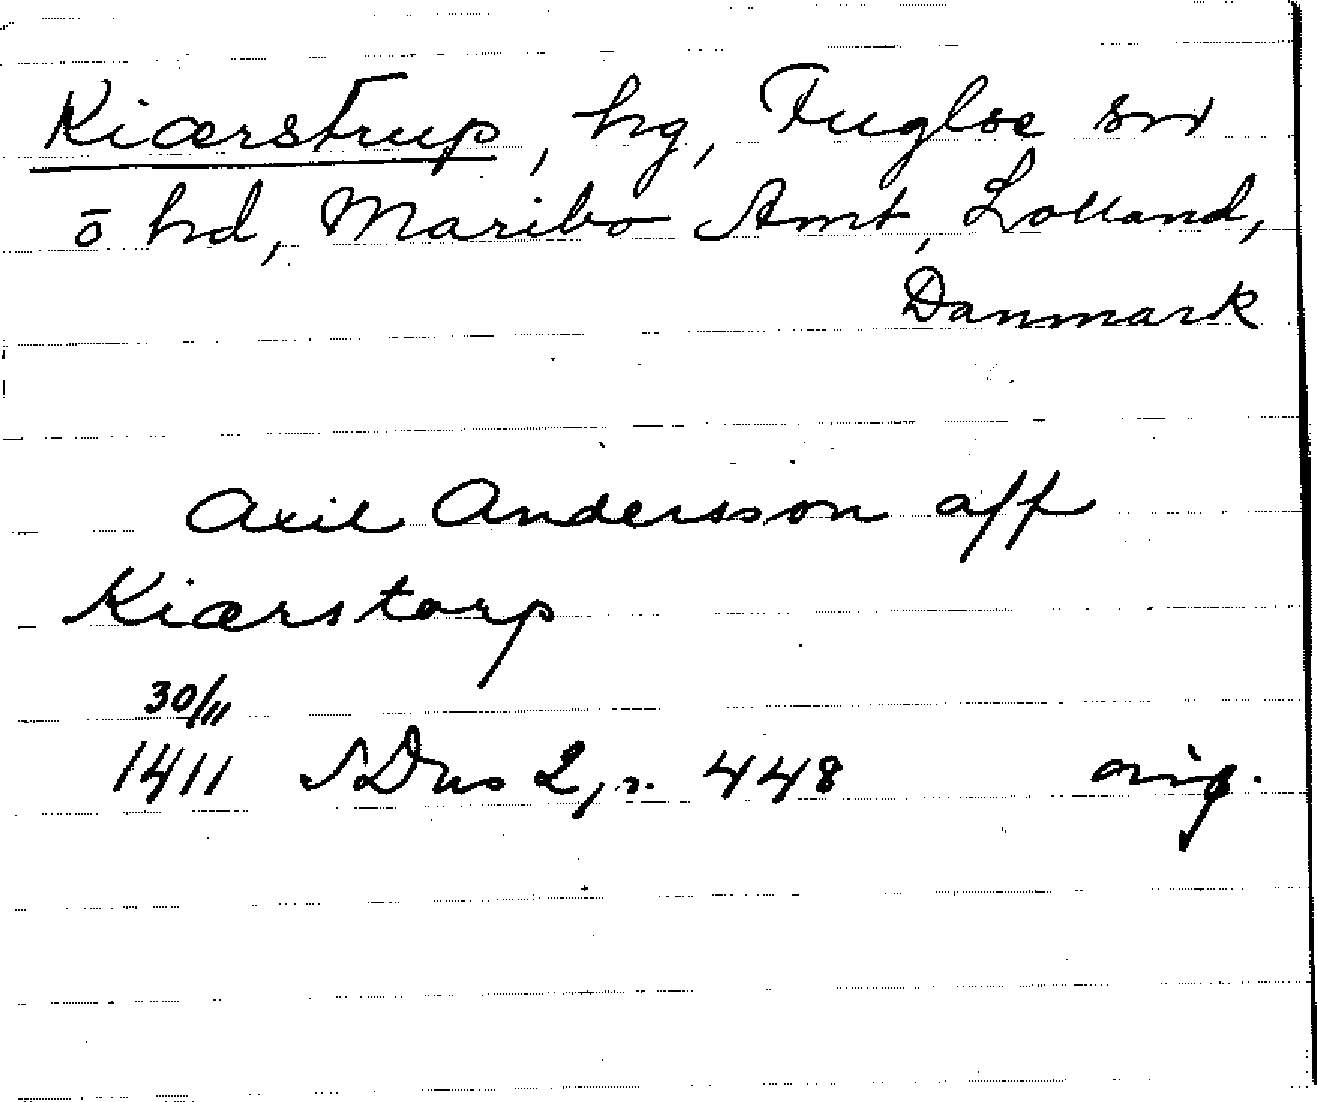 Kiærstrup, hg, Fugloe sn
ō hd, Maribo Amt, Lolland,
Danmark
Axil Andersson aff
Kiærstorp
30/11
1411 SDns 2, s. 448 orig.